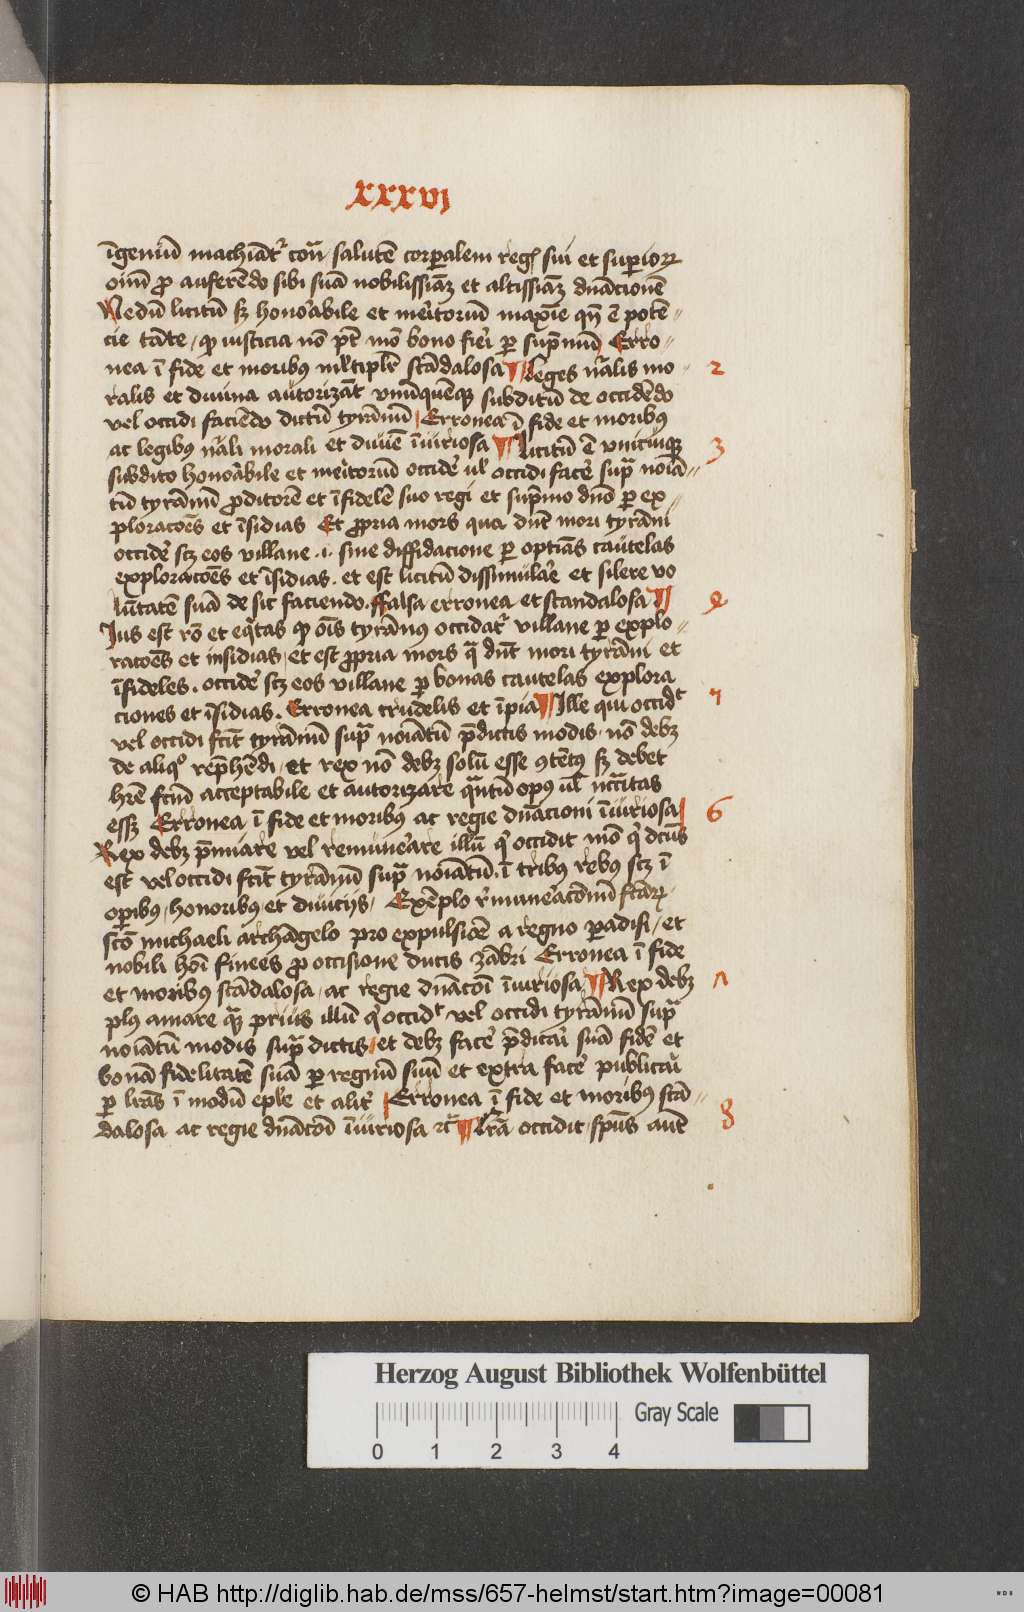 xxxvi
īgeniū machīat᷑ cōn salutē corꝑalem reg sui et suꝑiorꝝ
oīm ꝓ auferēdo sibi suā nobilissiāꝫ et altissiāꝫ dn̄acionē
Nedū licitū sꝫ honorabile et meritoriū maxīe qn̄ ē potē⹀
cie tāte / qꝫ iusticia nō pt̄ mō bono fieri ꝑ sup̄mū Erro⹀
nea ī fide et moribus ml̄tiplr̄ scādalosa ¶ Leges n̄alis mo⹀ 2
ralis et diuina autorizāt vnūquēqꝫ subditū de occidēdo
vel occidi faciēdo dictū tyrānū Erronea ī fide et moribus
ac legibus n̄ali morali et diuīe īiuriosa ¶ Licitū ē vnicuiqꝫ 3
subdito honorabile et meritoriū occidē ul̄ occidi facē sup̄ noīa⹀
tū tyrānū ꝓditorē et īfidelē suo regi et sup̄mo dn̄o ꝑ ex⹀
ploracōes et īsidias Et ꝓpria mors qua dn̄t mori tyrāni
occidē scꝫ eos villane .i. sine diffidacione ꝑ optīas cautelas
exploracōes et īsidias . et est licitū dissimulare et silere vo
lūtatē suā de sic faciendo . ffalsa erronea et scandalosa ¶ 4
Ius est rō et eqͥtas qꝫ oīs tyrānꝰ occidat᷑ villane ꝑ explo⹀
racōes et insidias / et est ꝓpria mors q̄ dn̄t mori tyrāni et
īfideles . occidē scꝫ eos villane ꝑ bonas cautelas explora
ciones et īsidias . Erronea crudelis et īpia ¶ Ille qui occidt᷑ 5
vel occidi fcīt tyrānū sup̄ noīatū p̄dictis modis . nō debꝫ
de aliqͦ rep̄hēdi / et rex nō debꝫ solū esse ꝯtētꝰ sꝫ debet
hr̄e fcm̄ acceptabile et autorizare q̄ntū opꝰ ul̄ nccītas
essꝫ Erronea ī fide et moribꝰ ac regie dn̄acioni īiuriosa 6
Rex debꝫ p̄miare vel remunerare illū qͥ occidit mō qͥ dcūs
est vel occidi fcīt tyrānū sup̄ noīatū . ī tribꝰ rebꝰ scꝫ ī
oꝑibꝰ , honoribꝰ et diuicijs . Exēplo r̄muneracōnū fcārꝝ
scō michaeli archāgelo pro expulsiōe a regno ꝑadisi / et
nobili hōi finees ꝓ occisione ducis zābri Erronea ī fide
et moribꝰ scādalosa , ac regie dn̄acōi īiuriosa ¶ Rex debꝫ 7
plꝰ amare qͣꝫ priꝰ illū qͥ occidt᷑ vel occidi tyrānū sup̄
noīatū modis sup̄ dictis / et debꝫ facē p̄dicari suā fidē et
bonā fidelitatē suā ꝑ regnū suū et extra facē publicari
ꝑ lr̄as ī modū epl̄e et alit᷑ Erronea ī fide et moribus scā⹀
dalosa ac regie dn̄acōi īiuriosa rc̄ ¶ Lr̄a occidit / spūs autē 8
Herzog August Bibliothek Wolfenbüttel
0 1 2 3 4
Gray Scale
© HAB http://diglib.hab.de/mss/657-helmst/start.htm?image=00081